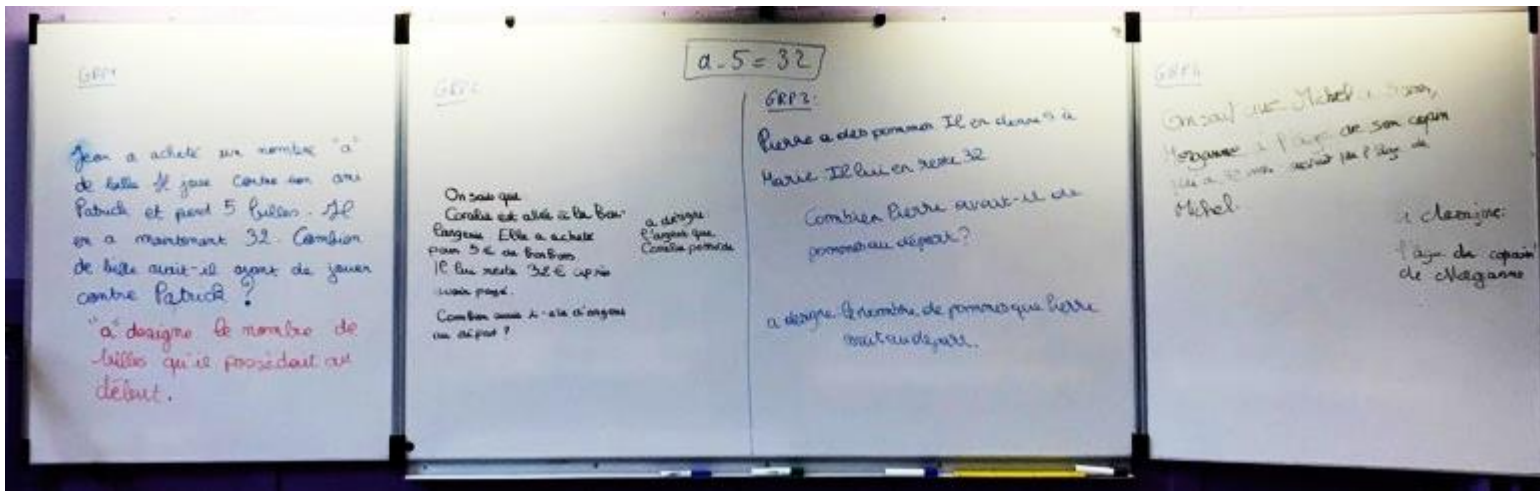 a - 5 = 32
GRP1
Jean a acheté un nombre "a"
de bille Il joue contre son ami
Patrick et perd 5 billes. Il
en a maintenant 32. Combien
de bille avait-il avant de jouer
contre Patrick ?
"a" designe le nombre de
billes qu'il possédait au
début.
On sais que
Coralie est allée à la Bou-
langerie. Elle a acheté
pour 5 € de BonBons
Il lui reste 32 € après
avoir payé.
Combien avait-elle d'argent
au départ ?
a désigne
l'argent que
Coralie possède
GRP2:
Pierre a des pommes Il en donne 5 à
Marie. Il lui en reste 32
Combien Pierre avait-il de
pommes au départ ?
a désigne le nombre de pommes que Pierre
avait au départ.
On sait que Michel a
Morganne a l'âge de son copin
l'âge de
Michel.
l'age du copain
de Morganne